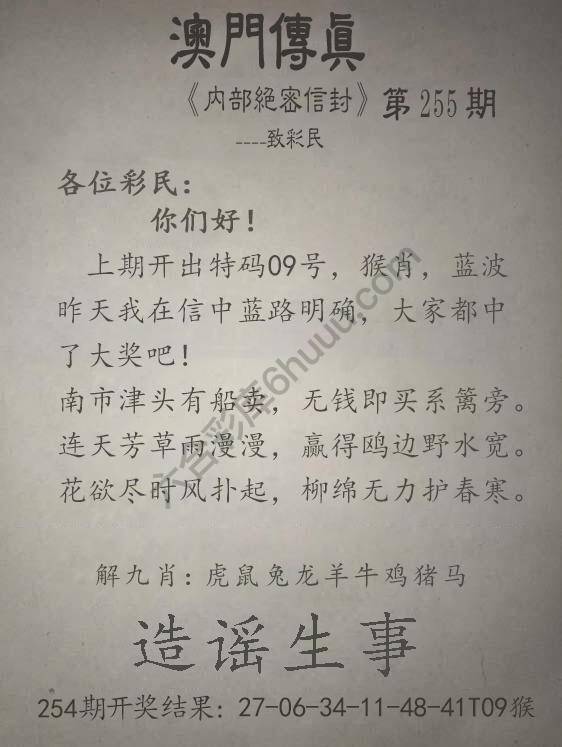 澳門傳真
《内部絕密信封》第255期
----致彩民
各位彩民：
你们好！
上期开出特码09号，猴肖，蓝波
昨天我在信中蓝路明确，大家都中
了大奖吧！
南市津头有船卖，无钱即买系篱旁。
连天芳草雨漫漫，赢得鸥边野水宽。
花欲尽时风扑起，柳绵无力护春寒。
六合彩库6huuu.com
解九肖：虎鼠兔龙羊牛鸡猪马
造谣生事
254期开奖结果：27-06-34-11-48-41T09猴